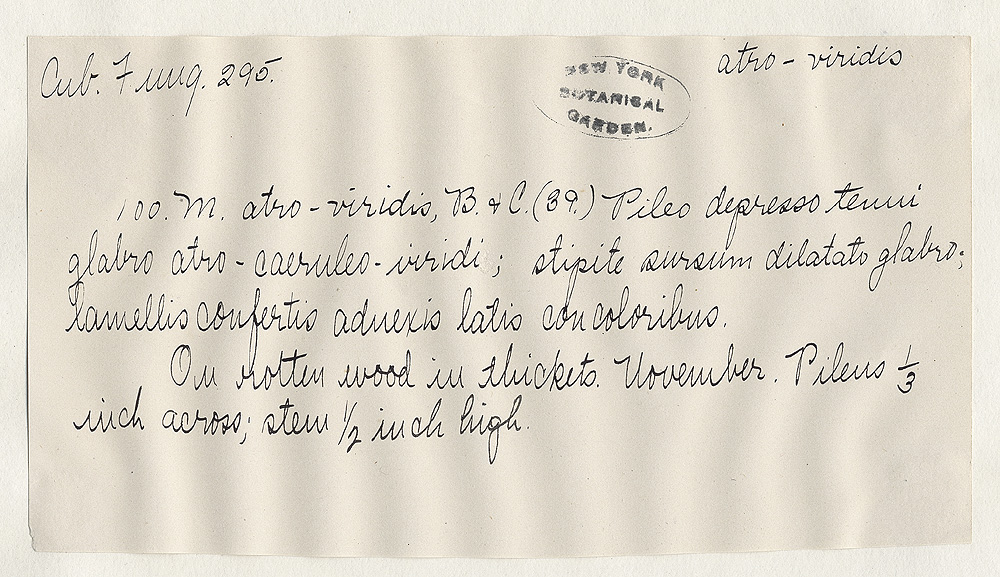 Cub. Fung. 295.
atro-viridis
NEW YORK
BOTANICAL
GARDEN.
100. M. atro-viridis, B. & C. (39.) Pileo depresso tenui
glabro atro-caeruleo-viridi; stipite sursum dilatato glabro;
lamellis confertis adnexis latis concoloribus.
On rotten wood in thickets. November. Pileus 1/3
inch across; stem 1/2 inch high.